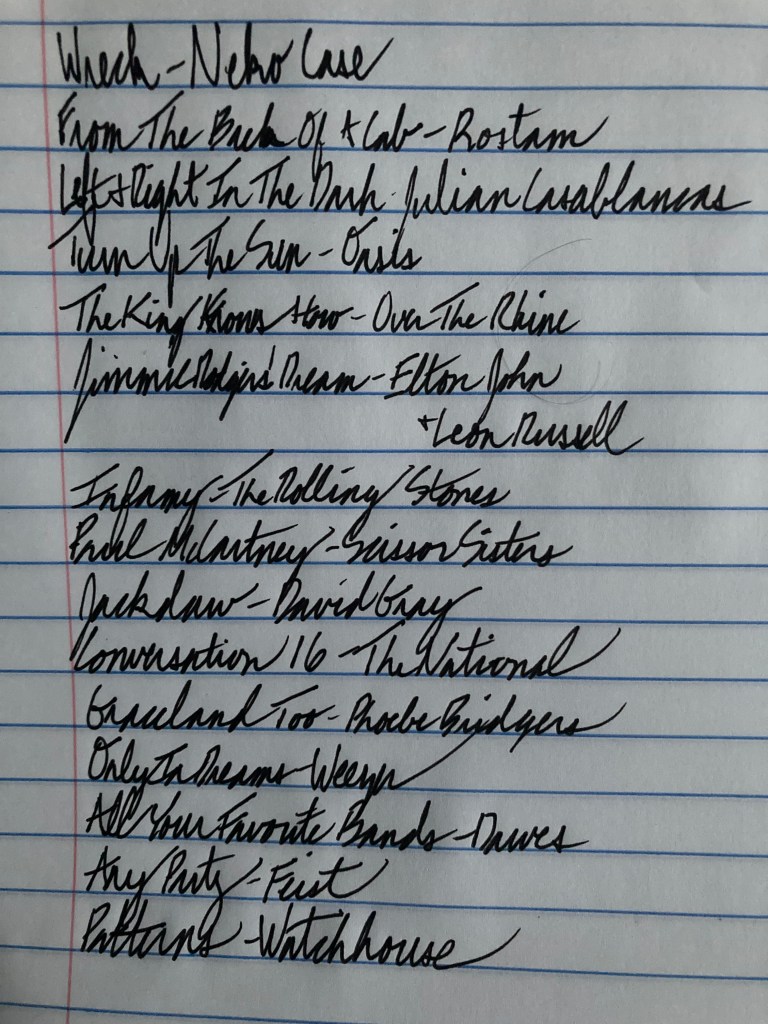 Wreck - Neko Case
From The Back Of A Cab - Rostam
Left & Right In The Dark - Julian Casablancas
Turn Up The Sun - Oasis
The King Knows How - Over The Rhine
Jimmie Rodgers' Dream - Elton John
+ Leon Russell
Infamy - The Rolling Stones
Paul McCartney - Scissor Sisters
Jackdaw - David Gray
Conversation 16 - The National
Graceland Too - Phoebe Bridgers
Only In Dreams - Weezer
All Your Favorite Bands - Dawes
Any Party - Feist
Patterns - Watchhouse